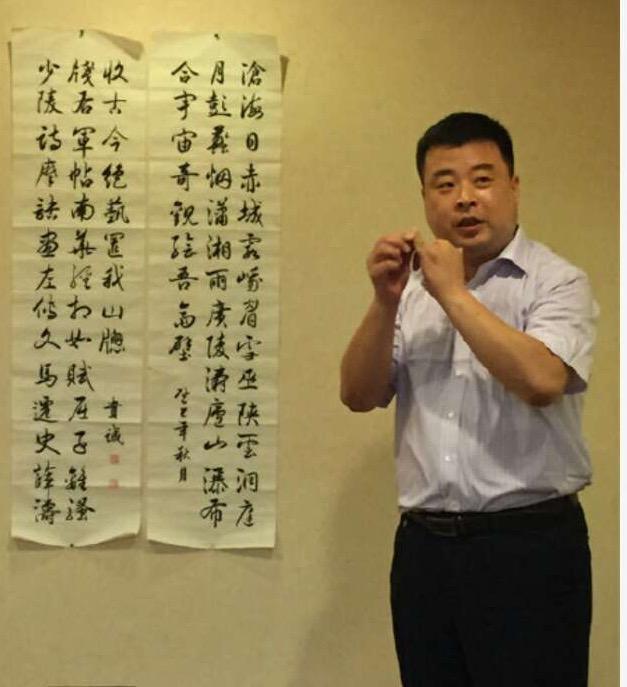 滄海日赤城霞峨眉雪巫峽雲洞庭
月彭蠡烟瀟湘雨廣陵濤廬山瀑布
合宇宙奇觀繪吾齋壁
癸巳年秋月
少陵詩摩詰畫左傳文馬遷史薛濤
牋右軍帖南華經相如賦屈子離騷
收古今絕藝置我山牕
貴誠